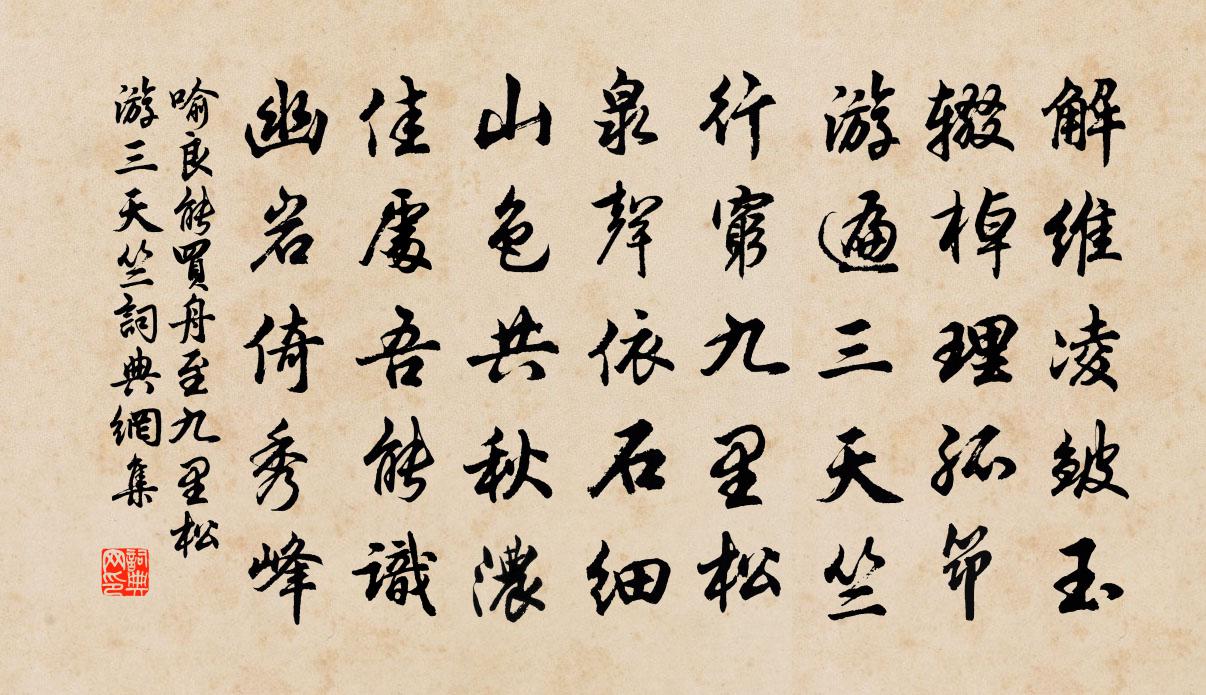 解維凌皺玉
辍棹理孤筇
游遍三天竺
行窮九里松
泉聲依石細
山色共秋濃
佳處吾能識
幽岩倚秀峰
喻良能買舟至九里松
游三天竺詞典網集
詞典
网印